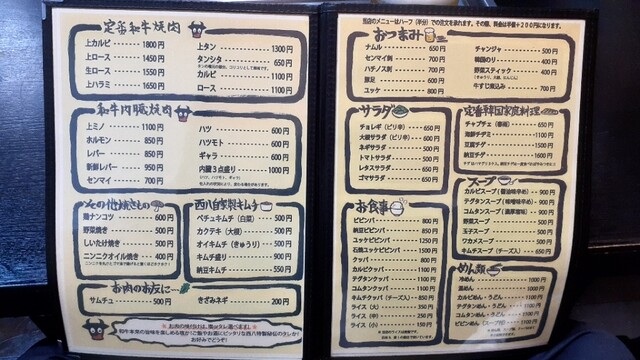 定番和牛焼肉
上カルビ 1800円
上ロース 1450円
生ロース 1550円
上ハラミ 1650円
上タン 1300円
タンシタ 650円
カルビ 1100円
ロース 1100円
和牛内臓焼肉
上ミノ 1100円
ホルモン 850円
レバー 850円
新鮮レバー 950円
センマイ 700円
ハツ 600円
ハツモト 600円
ギャラ 600円
内臓3点盛り 1000円
その他焼きもの
鶏ナンコツ 600円
野菜焼き 500円
しいたけ焼き 500円
ニンニクオイル焼き 400円
西八自家製キムチ
ペチュキムチ(白菜) 500円
カクテキ(大根) 500円
オイキムチ(きゅうり) 500円
キムチ盛り 900円
納豆キムチ 550円
お肉のお友に…
サムチュ 500円
きざみネギ 200円
お好みでどうぞ!
当店のメニューはハーフ(半分)での注文を承れます。その際、料金は半額+200円になります。
おつまみ
ナムル 650円
センマイ刺 700円
ハチノス刺 700円
豚足 600円
ユッケ 800円
チャンジャ 500円
韓国のり 400円
野菜スティック 400円
牛すじ煮込み 700円
サラダ
チョレギ(ピリ辛) 650円
大根サラダ(ピリ辛) 650円
ネギサラダ 500円
トマトサラダ 500円
レタスサラダ 650円
ゴマサラダ 650円
定番韓国家庭料理
チャプチェ(春雨) 650円
海鮮チヂミ 1100円
豆腐チゲ 1500円
納豆チゲ 1600円
お食事
ビビンバ 800円
納豆ビビンバ 850円
ユッケビビンバ 1250円
石焼ユッケビビンバ 1350円
クッパ 800円
カルビクッパ 1100円
テグタンクッパ 1100円
コムタンクッパ 1100円
キムチクッパ(チーズ入) 850円
ライス(大) 350円
ライス(中) 250円
ライス(小) 150円
スープ
カルビスープ(醤油味辛め) 900円
テグタンスープ(味噌味辛め) 900円
コムタンスープ(濃厚旨味) 900円
野菜スープ 500円
玉子スープ 500円
ワカメスープ 500円
キムチスープ(チーズ入) 650円
めん類
冷めん 1000円
温めん 1000円
カルビめん・うどん 1100円
テグタンめん・うどん 1100円
コムタンめん・うどん 1100円